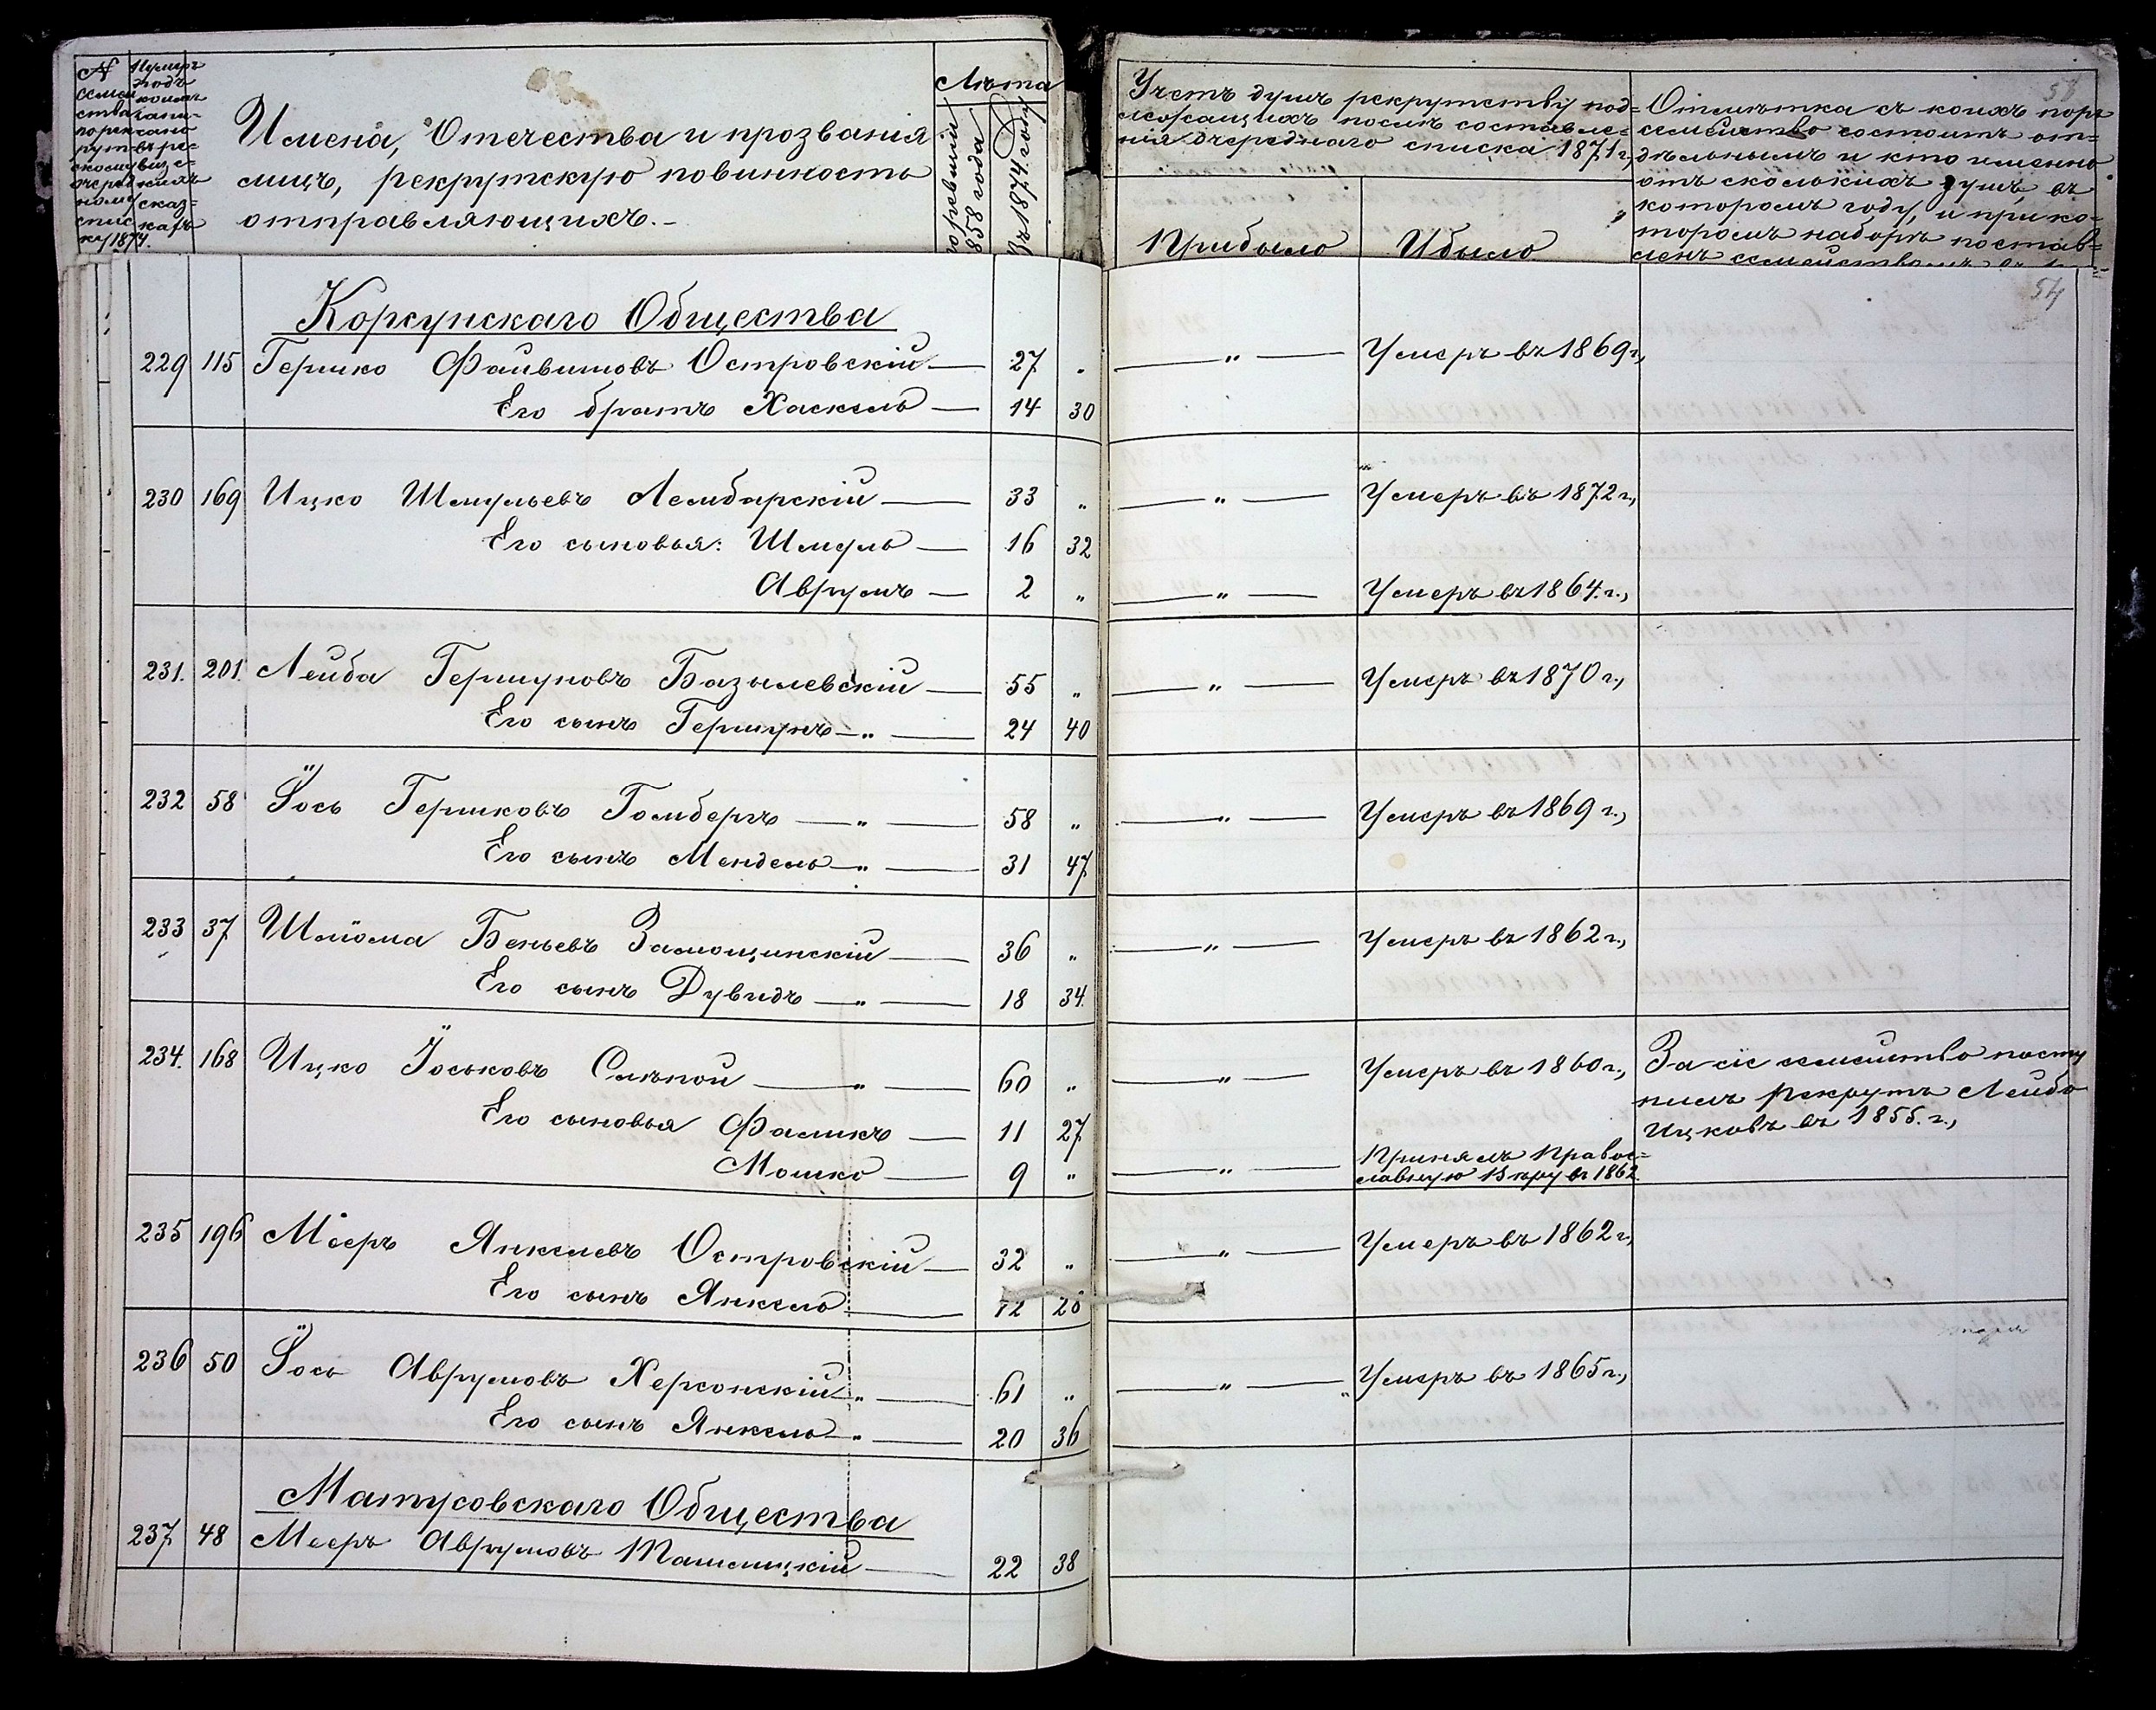 № семей
ства
по рек
рут
скому
очеред
ному
спис
ку 1874.
Нумеръ
подъ
коимъ
запи-
сано
въ ре-
визс-
кихъ
сказ-
кахъ
Имена, Отечества и прозванія
лицъ, рекрутскую повинность
отправляющихъ.-
Лѣта
по ревизіи
1858 года
къ 1874 году
Учетъ душъ рекрутству под=
лежащихъ послѣ составле=
нія очереднаго списка 1871 г.,
Прибыло
Убыло
Отмѣтка съ коихъ поръ
семейство состоитъ от=
дѣльнымъ и кто именно
отъ сколькихъ душъ, въ
которомъ году, и при ко-
торомъ наборѣ постав=
ленъ семействомъ
58
54
Корсунскаго Общества
229 115 Гершко Файвишовъ Островскій — 27 „ — „ — Умеръ въ 1869 г.,
Его братъ Хаскель — 14 30
230 169 Ицко Шмульевъ Лембарскій — 33 „ — „ — Умеръ въ 1872 г.,
Его сыновья: Шмуль — 16 32
Аврумъ — 2 „ — „ — Умеръ въ 1864. г.,
231. 201. Лейба Гершуновъ Базылевскій — 55 „ — „ — Умеръ въ 1870 г.,
Его сынъ Гершунъ — „ — 24 40
232 58 Іось Гершковъ Гомбергъ — „ — 58 „ — „ — Умеръ въ 1869 г.,
Его сынъ Мендель — „ — 31 47
233 37 Шліома Беньевъ Замощинскій — 36 „ — „ — Умеръ въ 1862 г.,
Его сынъ Дувидъ — „ — 18 34.
234. 168 Ицко Іоськовъ Слѣпой — „ — 60 „ — „ — Умеръ въ 1860 г.,
За сіе семейство посту
пилъ рекрутъ Лейба
Ицковъ въ 1855. г.,
Его сыновья Фаликъ — 11 27
Мошко — 9 „ — „ — Принялъ Правос=
лавную Вѣру въ 1862.
235 196 Мееръ Янкелевъ Островскій — 32 „ — „ — Умеръ въ 1862 г.,
Его сынъ Янкель — 12 28
236 50 Іось Аврумовъ Херсонскій „ — 61 „ — „ — Умеръ въ 1865 г.,
Его сынъ Янкель „ — 20 36
Матусовскаго Общества
237 48 Мееръ Аврумовъ Ташлицкій — 22 38